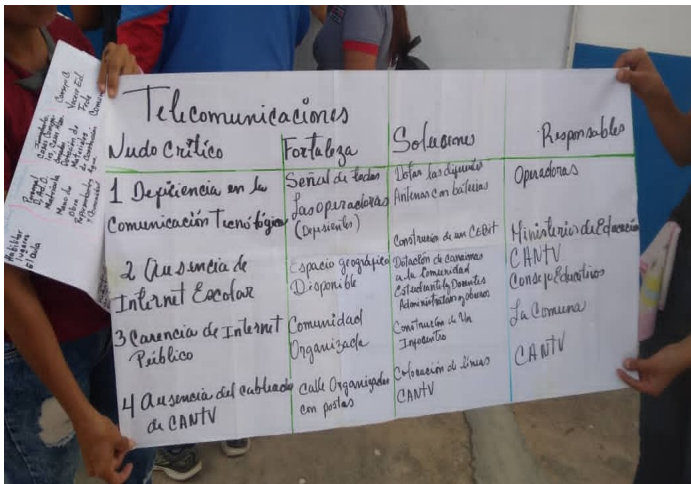 Telecomunicaciones
Nudo Crítico
Fortaleza
Soluciones
Responsables
1 Deficiencia en la
Comunicación Tecnológica
Señal de todas
Las operadoras
(Deficientes)
Dotar las diferentes
Antenas con baterías
Operadoras
2 Ausencia de
Internet Escolar
Espacio geográfico
Disponible
Construcción de un CEBIT
Dotación de canaimas
a la Comunidad
Estudiantil, Docentes
Administrativos y obreros
Ministerio de Educación
CANTV
Consejo Educativos
3 Carencia de Internet
Público
Comunidad
Organizada
Construcción de Un
Infocentro
La Comuna
4 Ausencia del cableado
de CANTV
Calle Organizadas
con postes
Colocación de líneas
CANTV
CANTV
Habilitar
lugares
Personal
Mano de
Obra
Materiales
Construcción